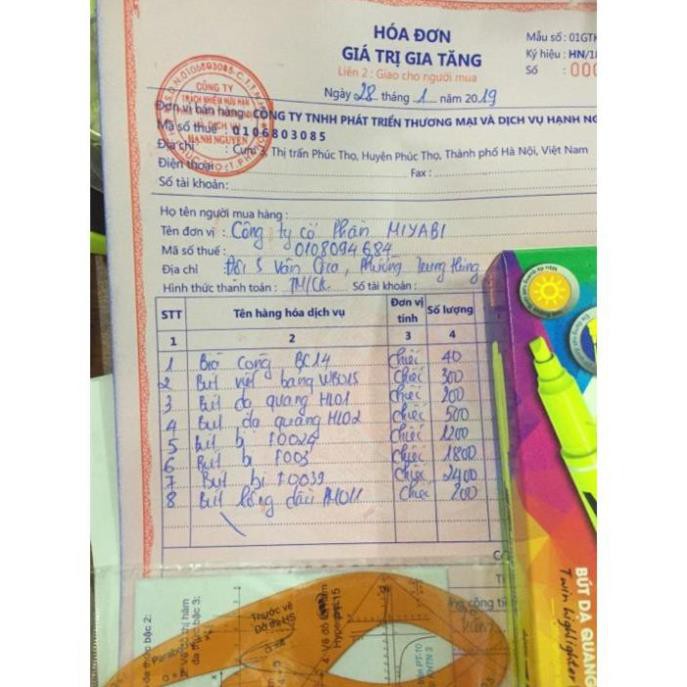 HÓA ĐƠN
GIÁ TRỊ GIA TĂNG
Liên 2 : Giao cho người mua
Ngày 28 tháng 1 năm 2019
Mẫu số : 01GTK
Ký hiệu : HN/1
Số : 000
CÔNG TY
TRÁCH NHIỆM HỮU HẠN
HẠNH NGUYÊN
Đơn vị bán hàng : CÔNG TY TNHH PHÁT TRIỂN THƯƠNG MẠI VÀ DỊCH VỤ HẠNH NG
Mã số thuế : 0106803085
Địa chỉ : Cụm 3, Thị trấn Phúc Thọ, Huyện Phúc Thọ, Thành phố Hà Nội, Việt Nam
Điện thoại : Fax :
Số tài khoản:
Họ tên người mua hàng :
Tên đơn vị : Công ty cổ phần MIYABI
Mã số thuế : 0108094684
Địa chỉ : Đội 5 Văn , Phường Trung Hưng
Hình thức thanh toán : TM/CK. Số tài khoản :
STT Tên hàng hóa dịch vụ Đơn vị tính Số lượng
1 2 3 4
1 Bìa còng BC14 chiếc 40
2 Bút viết bảng WB015 chiếc 300
3 Bút dạ quang HL01 chiếc 200
4 Bút dạ quang HL02 chiếc 500
5 Bút bi T0024 chiếc 1200
6 Bút bi T003 chiếc 1800
7 Bút bi T0039 chiếc 2400
8 Bút lông dầu PM011 chiếc 200
BÚT DẠ QUANG
Twin highlighter
Thước vẽ
Parabol